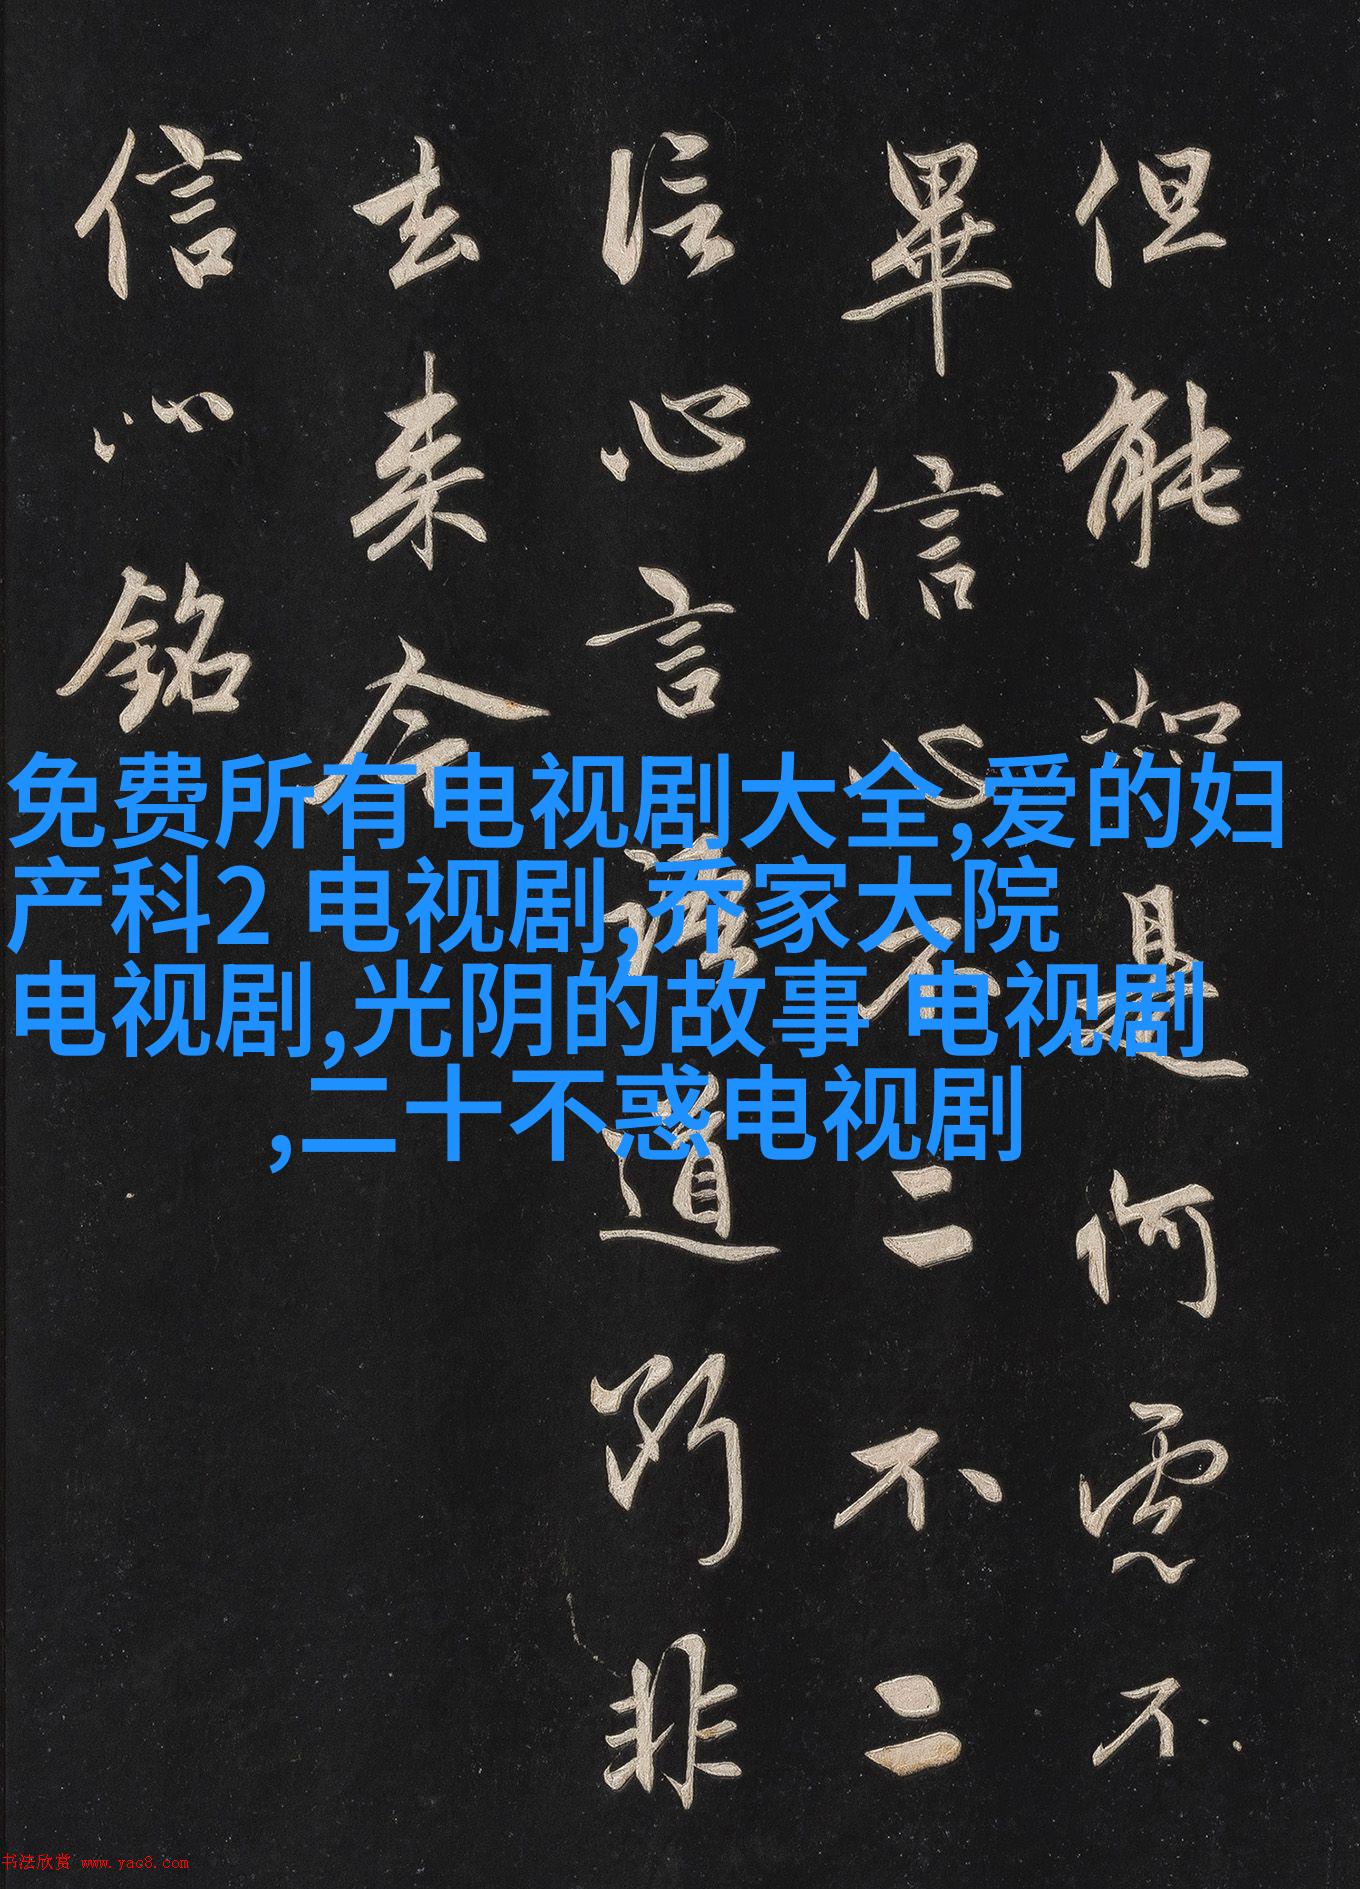 但能如是何慮不
畢信心不二不二
信心言語道斷非
去来今
信心銘
免费所有电视剧大全,爱的妇
产科2 电视剧,乔家大院
电视剧,光阴的故事 电视剧
,二十不惑电视剧
书法欣赏 www.yac8.com